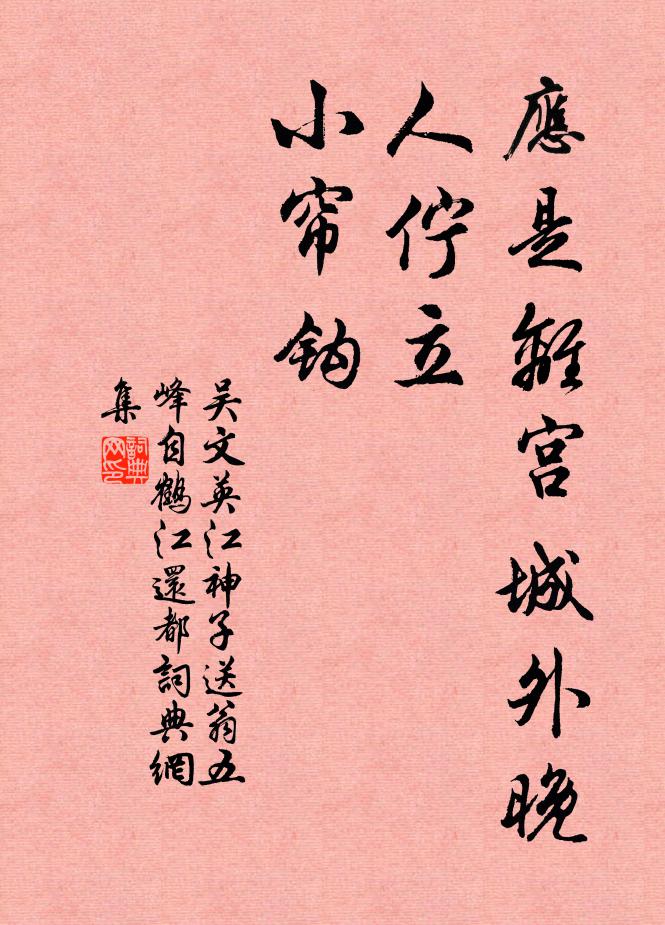 應是離宮城外晚
人佇立
小帘鈎
吴文英江神子送翁五
峰自鶴江還都詞典網
集
詞典網印